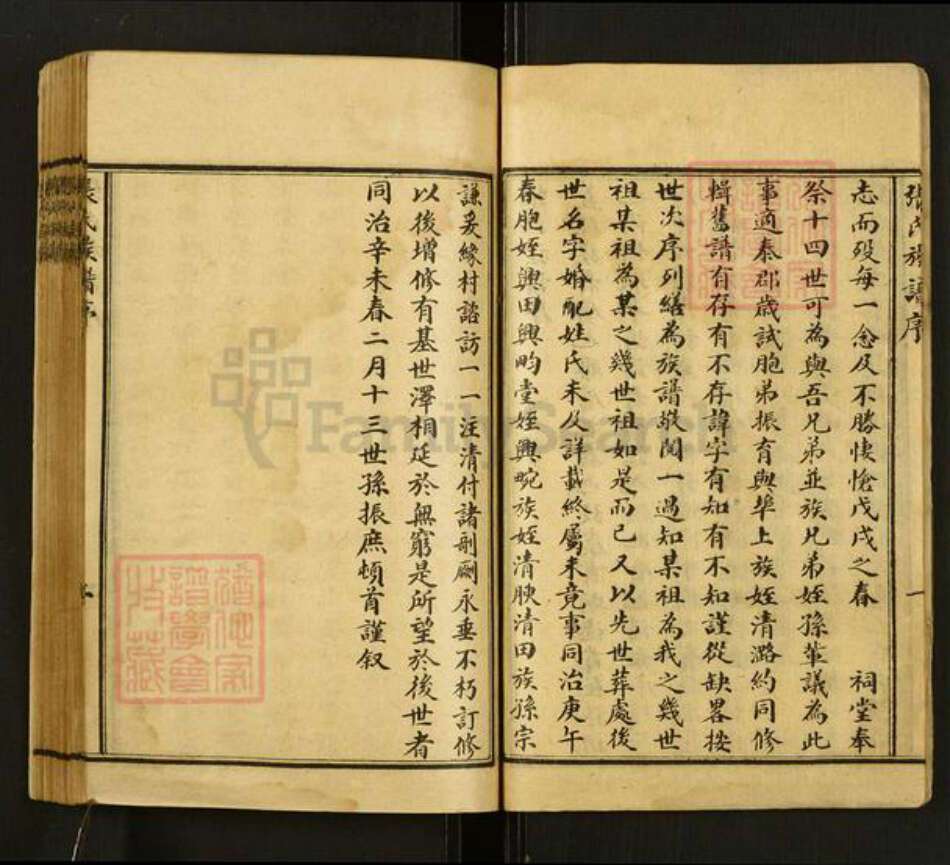 張氏族譜序
志而歿每一念及不勝悽愴戊戌之春 祠堂奉
祭十四世可為與吾兄弟並族兄弟姪孫輩議為此
事適泰郡歲試胞弟振育與犖上族姪清潞約同修
輯舊譜有存有不存諱字有知有不知謹從缺畧按
世次序列繕為族譜敬閱一過知某祖為我之幾世
祖某祖為某之幾世祖如是而已又以先世葬處後
世名字婚配姓氏未及詳載終屬未竟事同治庚午
春胞姪興田興畇堂姪興畹族姪清腴清田族孫宗
謙爰緣村諮訪一一注清付諸剞劂永垂不朽訂修
以後增修有基世澤相延於無窮是所望於後世者
同治辛未春二月十三世孫振庶頓首謹叙
張氏族譜序
一
FamilySearch